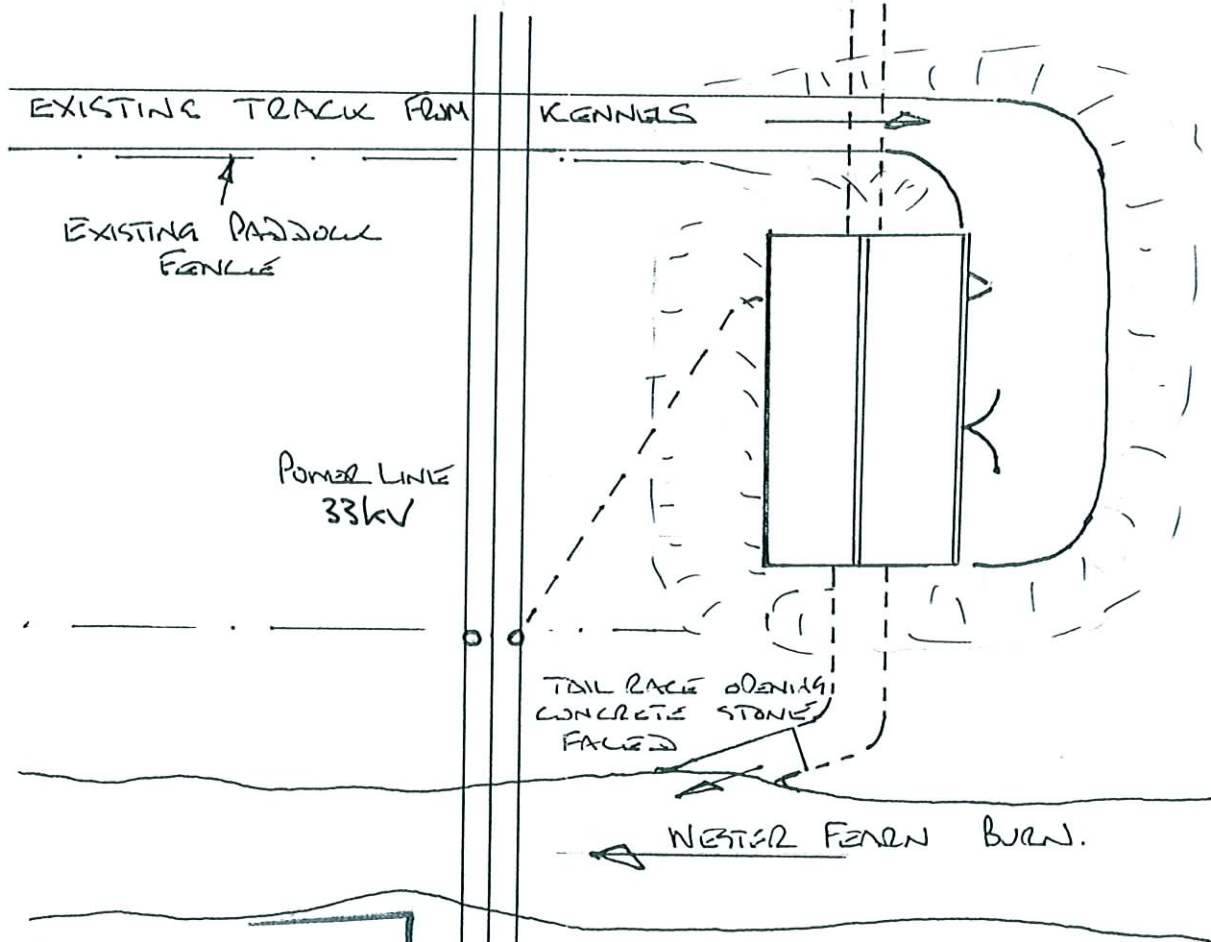 EXISTING TRACK FROM KENNELS
EXISTING PADDOCK
FENCE
POWER LINE
33kV
TAIL RACE OPENING
CONCRETE STONE
FACED
WESTER FEARN BURN.